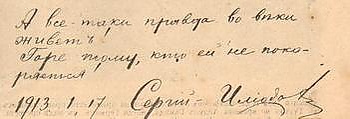 А все-таки правда во вѣки
живетъ
Горе тому, кто ей не поко-
ряется
1913 1 17 Сергій